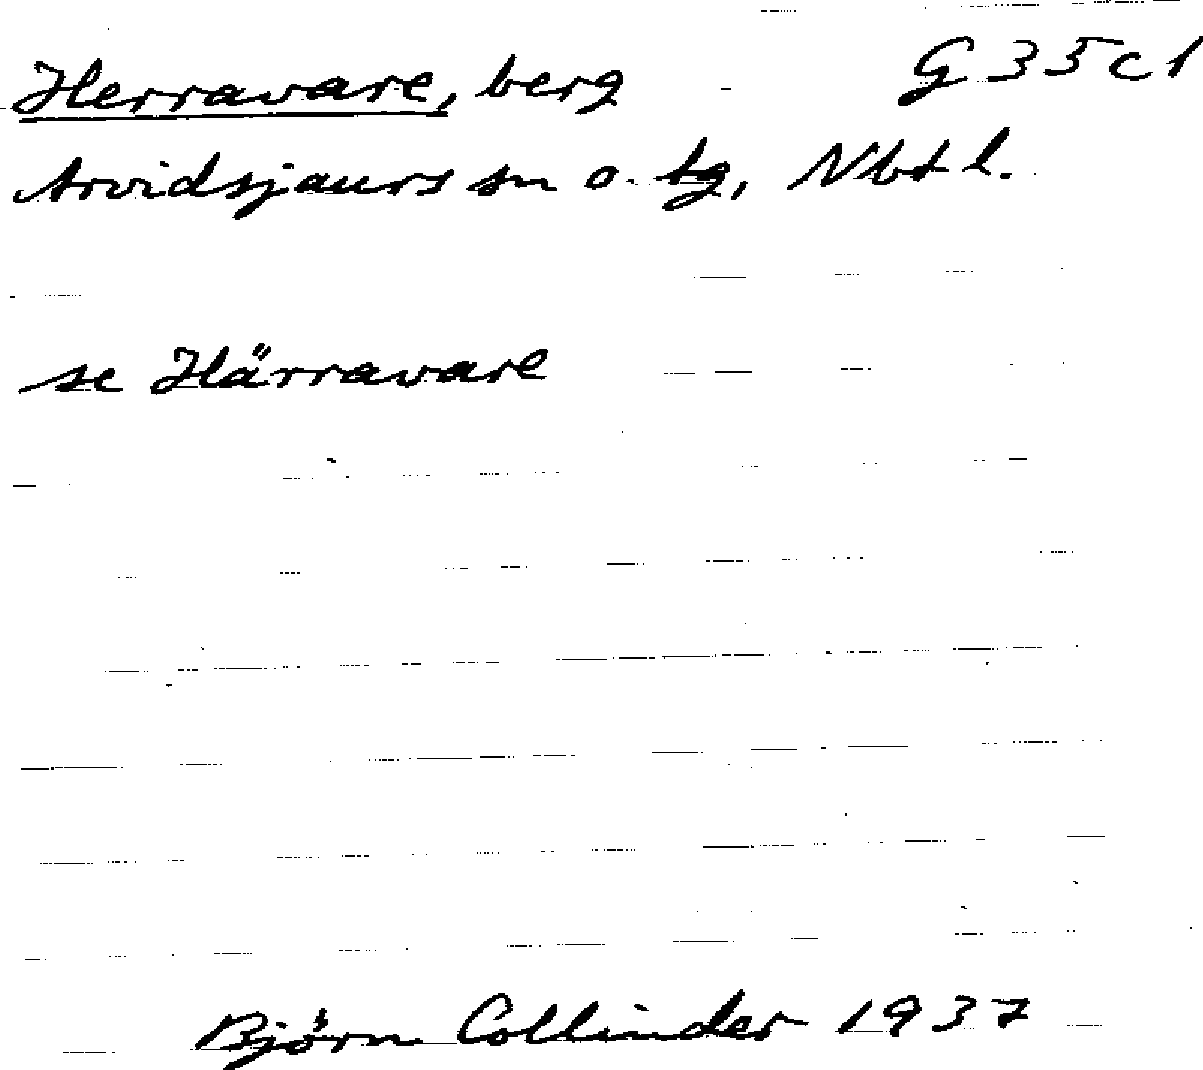 Herravare, berg G 35 c 1
Arvidsjaurs sn o. tg, Nbtl.
se Härravare
Björn Collinder 1937